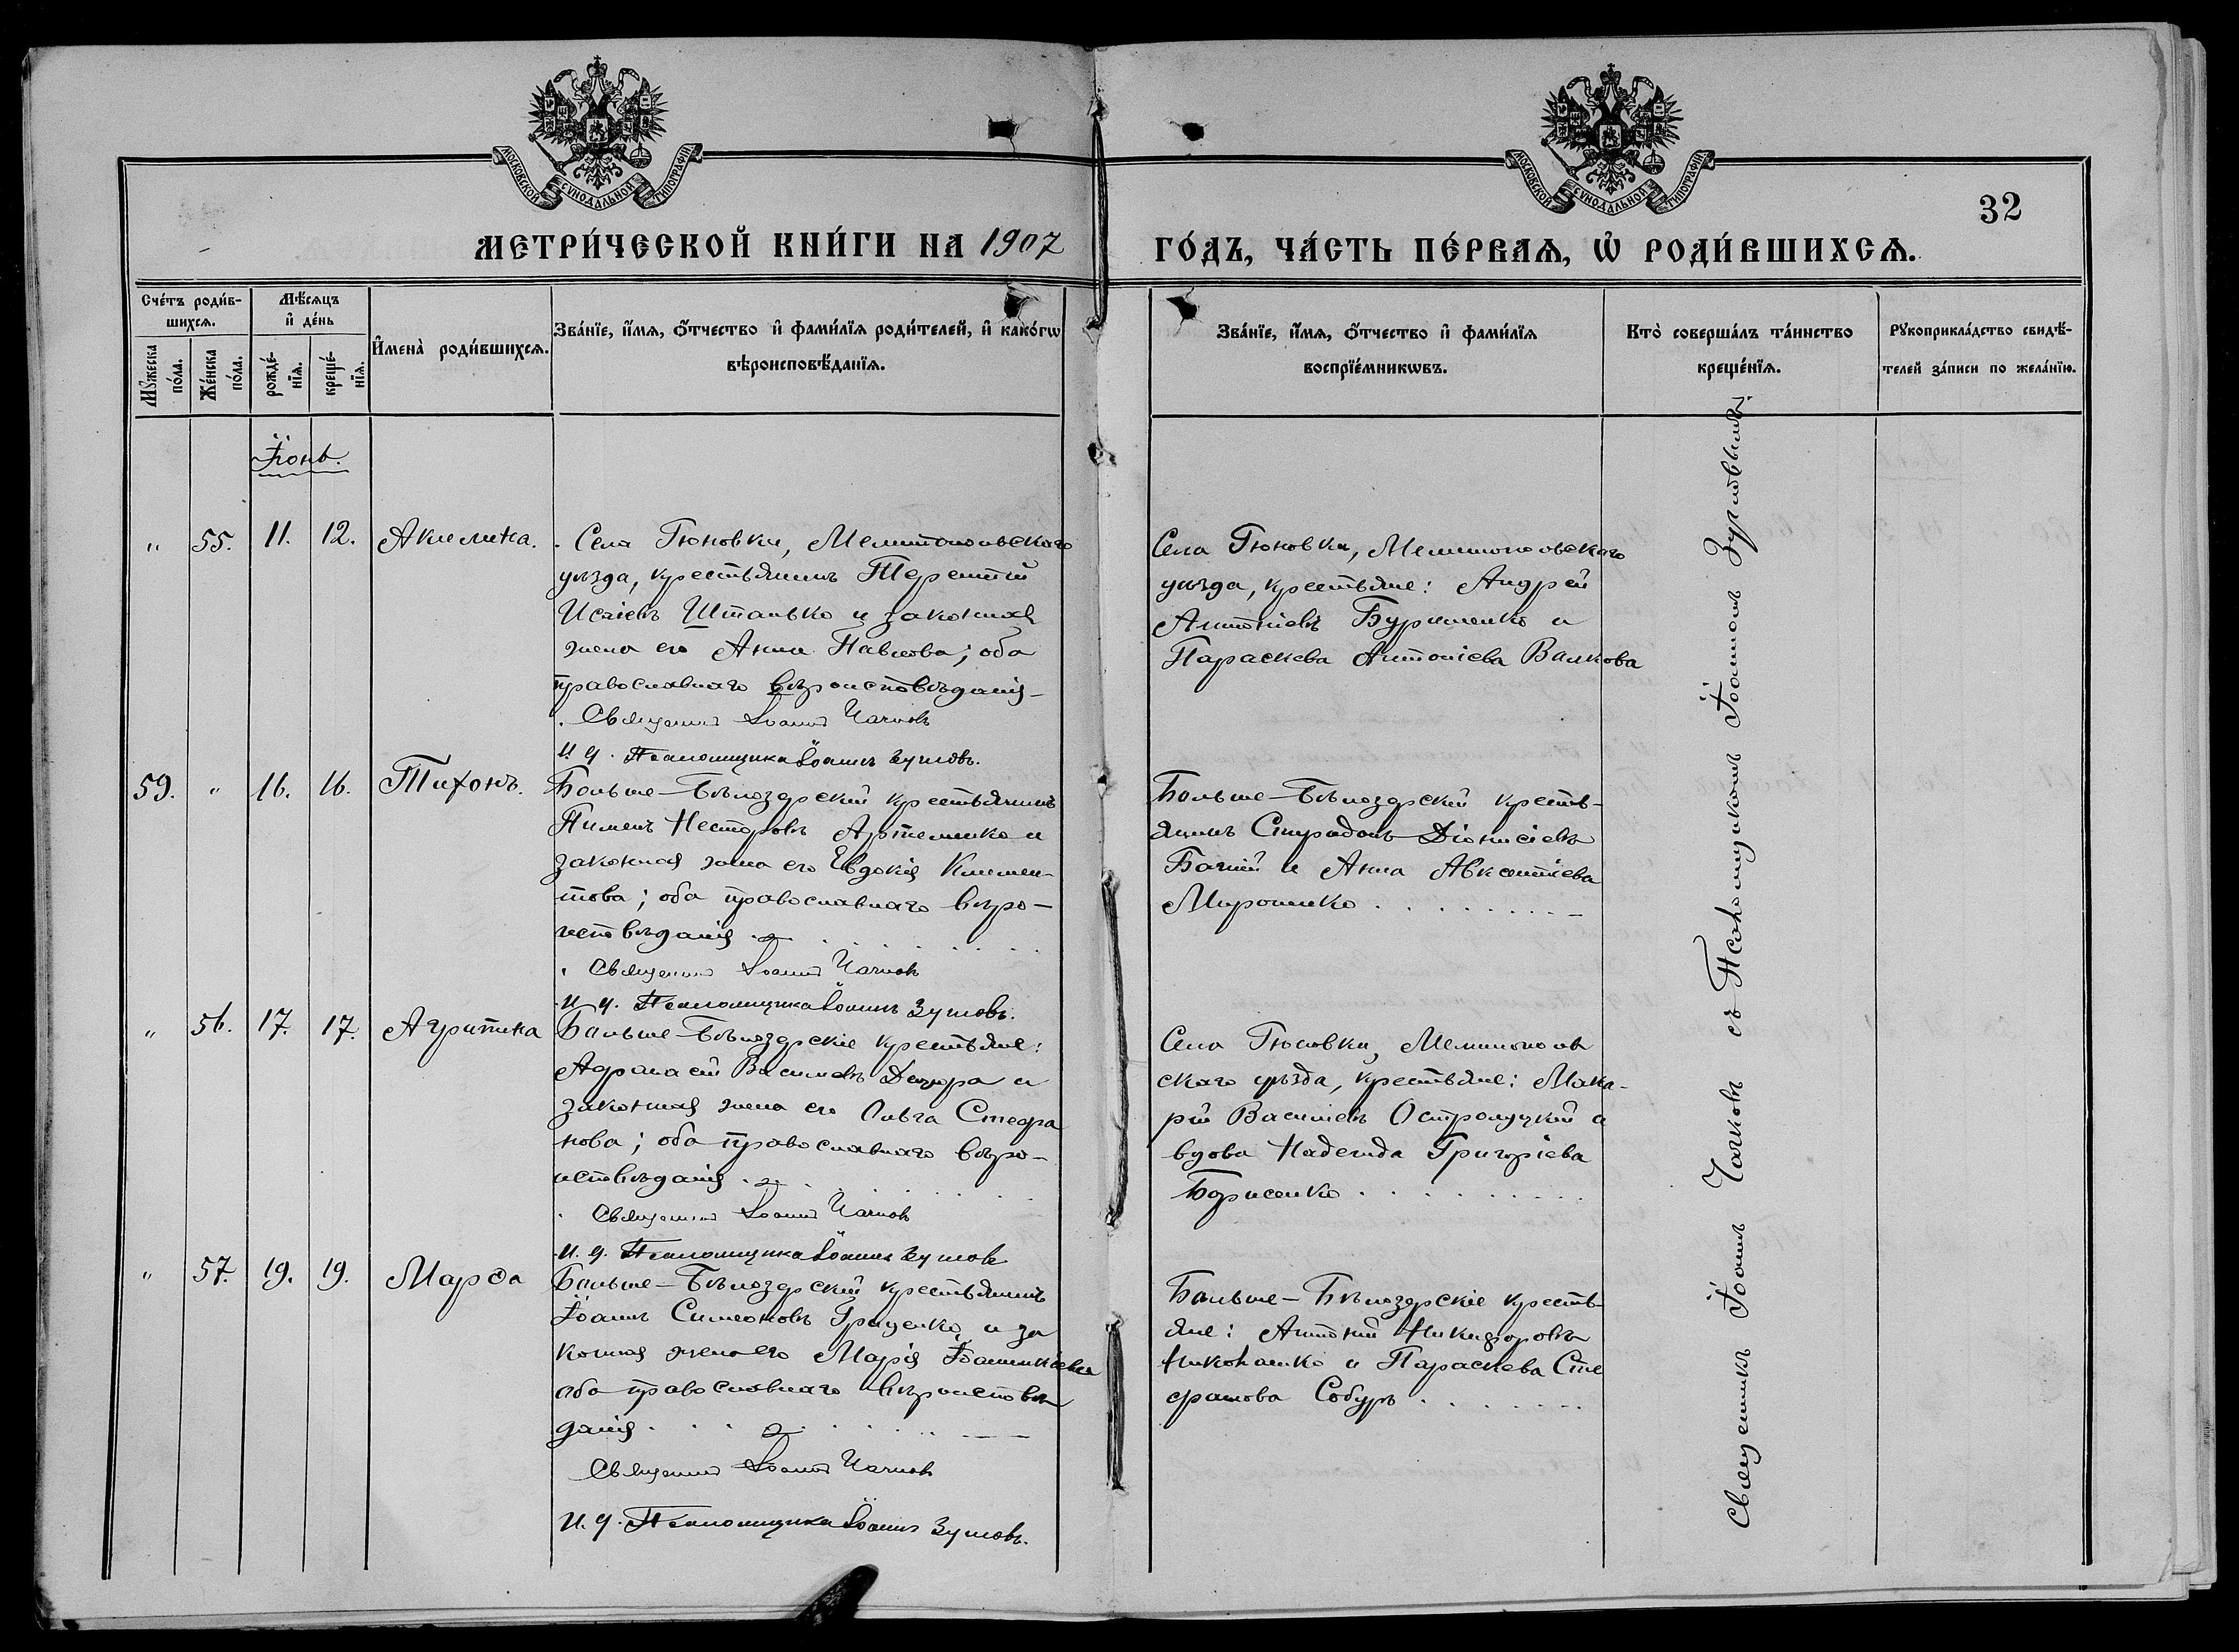 МОСКОВСКОЙ СѴНОДАЛЬНОЙ ТИПОГРАФІИ
МОСКОВСКОЙ СѴНОДАЛЬНОЙ ТИПОГРАФІИ
32
МЕТРИ́ЧЕСКОЙ КНИ́ГИ НА 1907 ГО́ДЪ, ЧА́СТЬ ПЕ́РВАЯ, Ѡ҆ РОДИ́ВШИХСЯ.
Сче́тъ роди́в-
шихся.
Мꙋ́жеска
по́ла.
Же́нска
по́ла.
Мѣ́сяцъ
и҆ де́нь
рожде́-
нїя.
креще́-
нїя.
И҆мена̀ роди́вшихся.
Зва́нїе, и҆́мя, ѻ҆́тчество и҆ фами́лїя роди́телей, и҆ како́гѡ
вѣроисповѣ́данїя.
Зва́нїе, и҆́мя, ѻ҆́тчество и҆ фами́лїя
воспрїе́мникѡвъ.
Кто̀ соверша́лъ та́инство
креще́нїя.
Рꙋкоприкла́дство свидѣ́-
телей за́писи по жела́нїю.
Іюнь.
" 55. 11. 12. Акилина.
Села Гюновки, Мелитопольскаго
уѣзда, крестьянинъ Терентій
Исаіевъ Шталько и законная
жена его Анна Павлова; оба
православнаго вѣроисповѣданія
Священникъ Іоаннъ Чайковъ
И. д. Псаломщика Іоаннъ Зутовъ.
Села Гюновки, Мелитопольскаго
уѣзда, крестьяне: Андрей
Антоніевъ Буряченко и
Параскева Антоніева Валкова
59. " 16. 16. Тихонъ.
Больше-Бѣлозерскій крестьянинъ
Пименъ Несторовъ Артеменко и
законная жена его Евдокія Климен-
това; оба православнаго вѣро-
исповѣданія
Священникъ Іоаннъ
И. д. Псаломщика Іоаннъ
Больше-Бѣлозерскій кресть-
янинъ Спиридонъ Діонисіевъ
Бачій и Анна Авксентіева
Мироненко
" 56. 17. 17. Агрипина
Больше-Бѣлозерскіе крестьяне:
Афанасій Василіевъ и
законная жена его Ольга Стефа
нова; оба православнаго вѣро-
исповѣданія
Священникъ Іоаннъ
И. д. Псаломщика Іоаннъ
Села Гюновки, Мелитополь
скаго уѣзда, крестьяне: Мака-
рій Василіевъ и
вдова Надежда Григоріева
Борисенко
" 57. 19. 19. Марѳа
Больше-Бѣлозерскій крестьянинъ
Іоаннъ Симеоновъ Гриценко, и за
конная жена его Марія Іоанникіева
оба православнаго вѣроисповѣ
данія
Священникъ Іоаннъ
И. д. Псаломщика Іоаннъ
Больше-Бѣлозерскіе кресть-
яне: Антоній Никифоровъ
и Параскева Сте
фанова Собуръ
Священникъ Іоаннъ съ Псаломщикомъ Іоанномъ